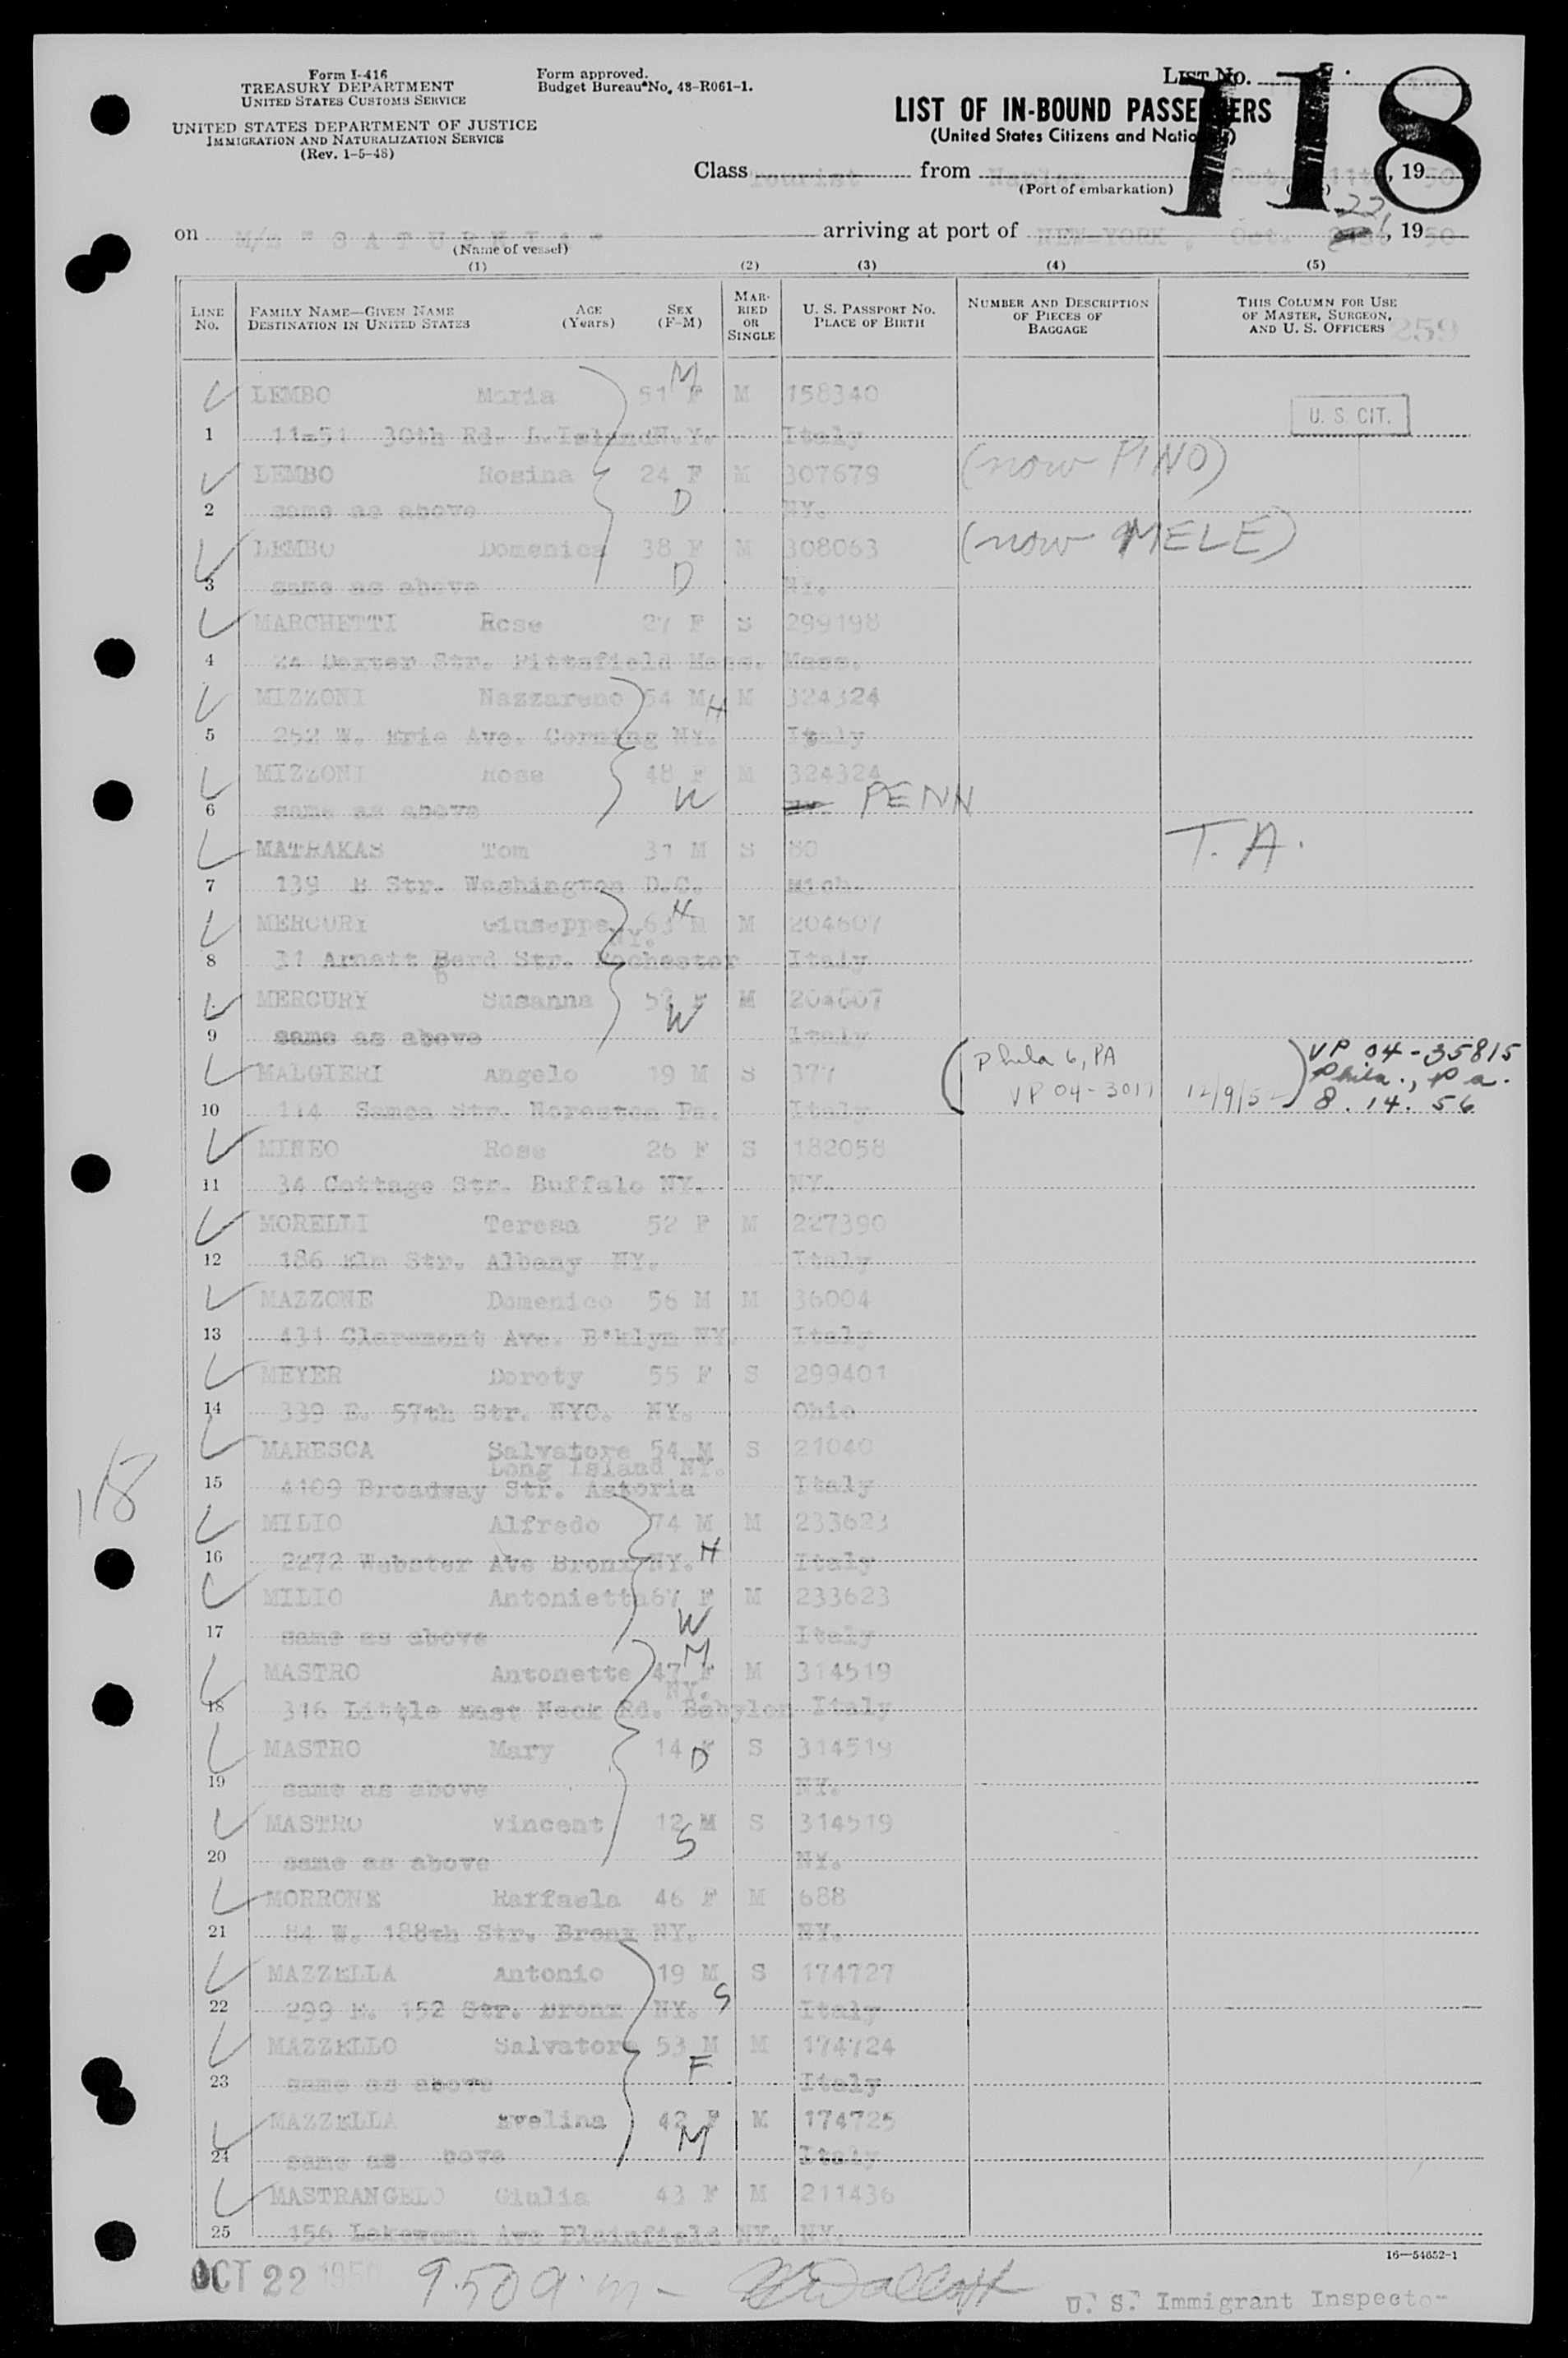 Form I-416
TREASURY DEPARTMENT
UNITED STATES CUSTOMS SERVICE
UNITED STATES DEPARTMENT OF JUSTICE
IMMIGRATION AND NATURALIZATION SERVICE
(Rev. 1-5-48)
Form approved.
Budget Bureau No. 48-R061-1.
LIST No. 118
LIST OF IN-BOUND PASSENGERS
(United States Citizens and Nationals)
Class Tourist from Naples Oct. 11th, 1950
(Port of embarkation)
on M/s "SATURNIA" arriving at port of NEW-YORK, Oct. 22, 1950
(Name of vessel)
(1) (2) (3) (4) (5)
LINE No. FAMILY NAME—GIVEN NAME DESTINATION IN UNITED STATES AGE (Years) SEX (F-M) MARRIED OR SINGLE U. S. PASSPORT No. PLACE OF BIRTH NUMBER AND DESCRIPTION OF PIECES OF BAGGAGE THIS COLUMN FOR USE OF MASTER, SURGEON, AND U. S. OFFICERS 259
LEMBO Maria 51 F M M 158340 U. S. CIT.
1 11-51 30th Rd. L.Island N.Y. Italy
LEMBO Rosina 24 F M 307679 (now PINO)
2 same as above D NY.
LEMBO Domenica 38 F M 308063 (now MELE)
3 same as above D NY.
MARCHETTI Rose 27 F S 299198
4 24 Dexter Str. Pittsfield Mass. Mass.
MIZZONI Nazzareno 54 M H M 324324
5 252 W. Erie Ave. Corning NY. Italy
MIZZONI Rose 48 F M 324324
6 same as above W PENN
MATRAKAS Tom 31 M S 80 T. A.
7 139 B Str. Washington D.C. Mich.
MERCURY Giuseppe 63 H M M 204607
NY.
8 31 Arnatt Bard Str. Rochester Italy
MERCURY Susanna 57 F M 204607
9 same as above W Italy
MALGIERI Angelo 19 M S 377 (Phila 6, PA VP 04-3017 12/9/52) VP 04-35815
Phila., Pa.
10 114 Samoa Str. Noreston Pa. Italy 8. 14. 56
MINEO Rose 26 F S 182058
11 34 Cottage Str. Buffalo NY. NY.
MORELLI Teresa 52 F M 227390
12 186 Elm Str. Albany NY. Italy
MAZZONE Domenico 56 M M 36004
13 431 Claremont Ave. B'klyn NY. Italy
MEYER Doroty 55 F S 299401
14 339 E. 57th Str. NYC. NY. Ohio
MARESCA Salvatore 54 M S 21040
Long Island NY.
15 4109 Broadway Str. Astoria Italy
118
MILIO Alfredo 74 M M 233623
16 2272 Webster Ave Bronx NY. H Italy
MILIO Antonietta 67 F M 233623
17 same as above W Italy
MASTRO Antonette 47 F M M 314519
NY.
18 316 Little East Neck Rd. Babylon Italy
MASTRO Mary 14 F D S 314519
19 same as above NY.
MASTRO Vincent 12 M S 314519
20 same as above S NY.
MORRONE Raffaela 46 F M 688
21 84 W. 188th Str. Bronx NY. NY.
MAZZELLA Antonio 19 M S 174727
22 299 E. 152 Str. Bronx NY. S Italy
MAZZELLO Salvatore 53 M M 174724
23 same as above F Italy
MAZZELLA Evelina 42 F M 174725
24 same as bove M Italy
MASTRANGELO Giulia 43 F M 211436
25 156 Ave Plainfield NY. NY.
16—54652-1
OCT 22 1950 9.50 a.m. U. S. Immigrant Inspecto-